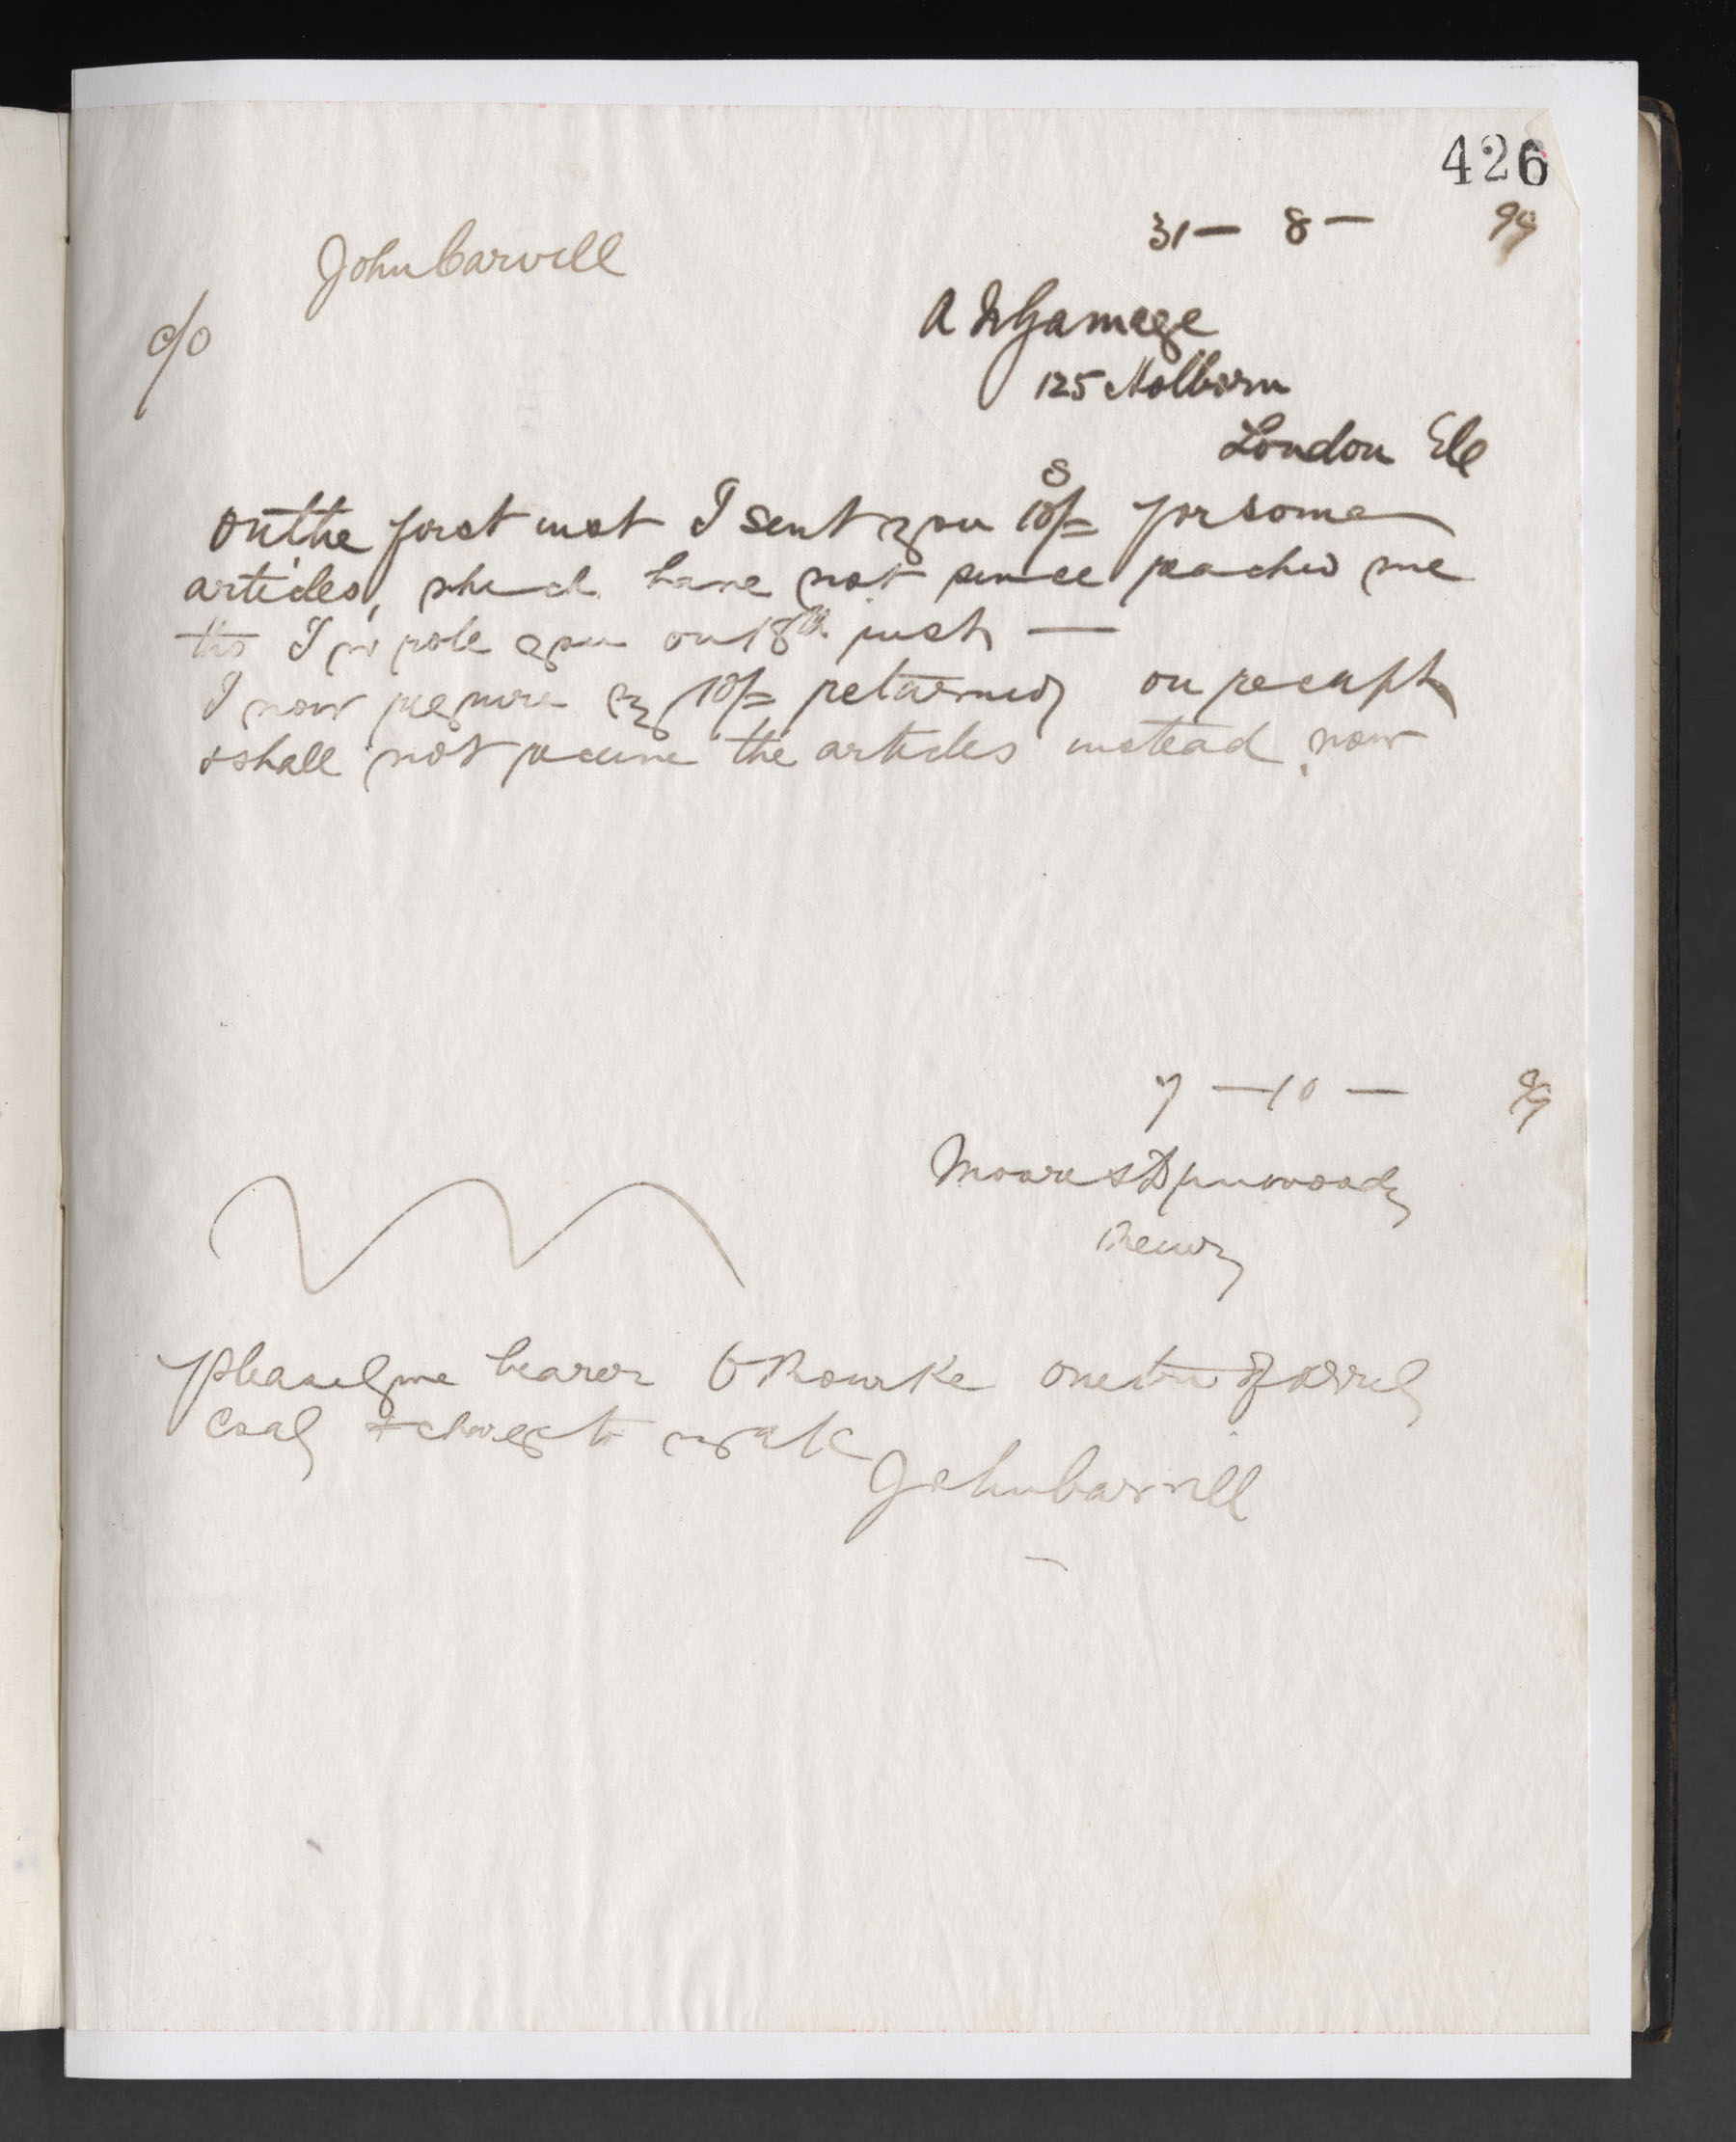 426
31 - 8 - 99
John Carvill
c/o
A W Gamage
125 Holborn
London EC
On the first inst I sent you 10/= for some
articles, which have not since reached me
tho I wrote you on 18th inst —
I now require my 10/= returned on receipt
& shall not receive the articles instead now
7 - 10 - 99
Moore & Dinwoody
Newry
Please give bearer O Rourke one ton of Orrel
Coal & charge to my a/c
John Carvill